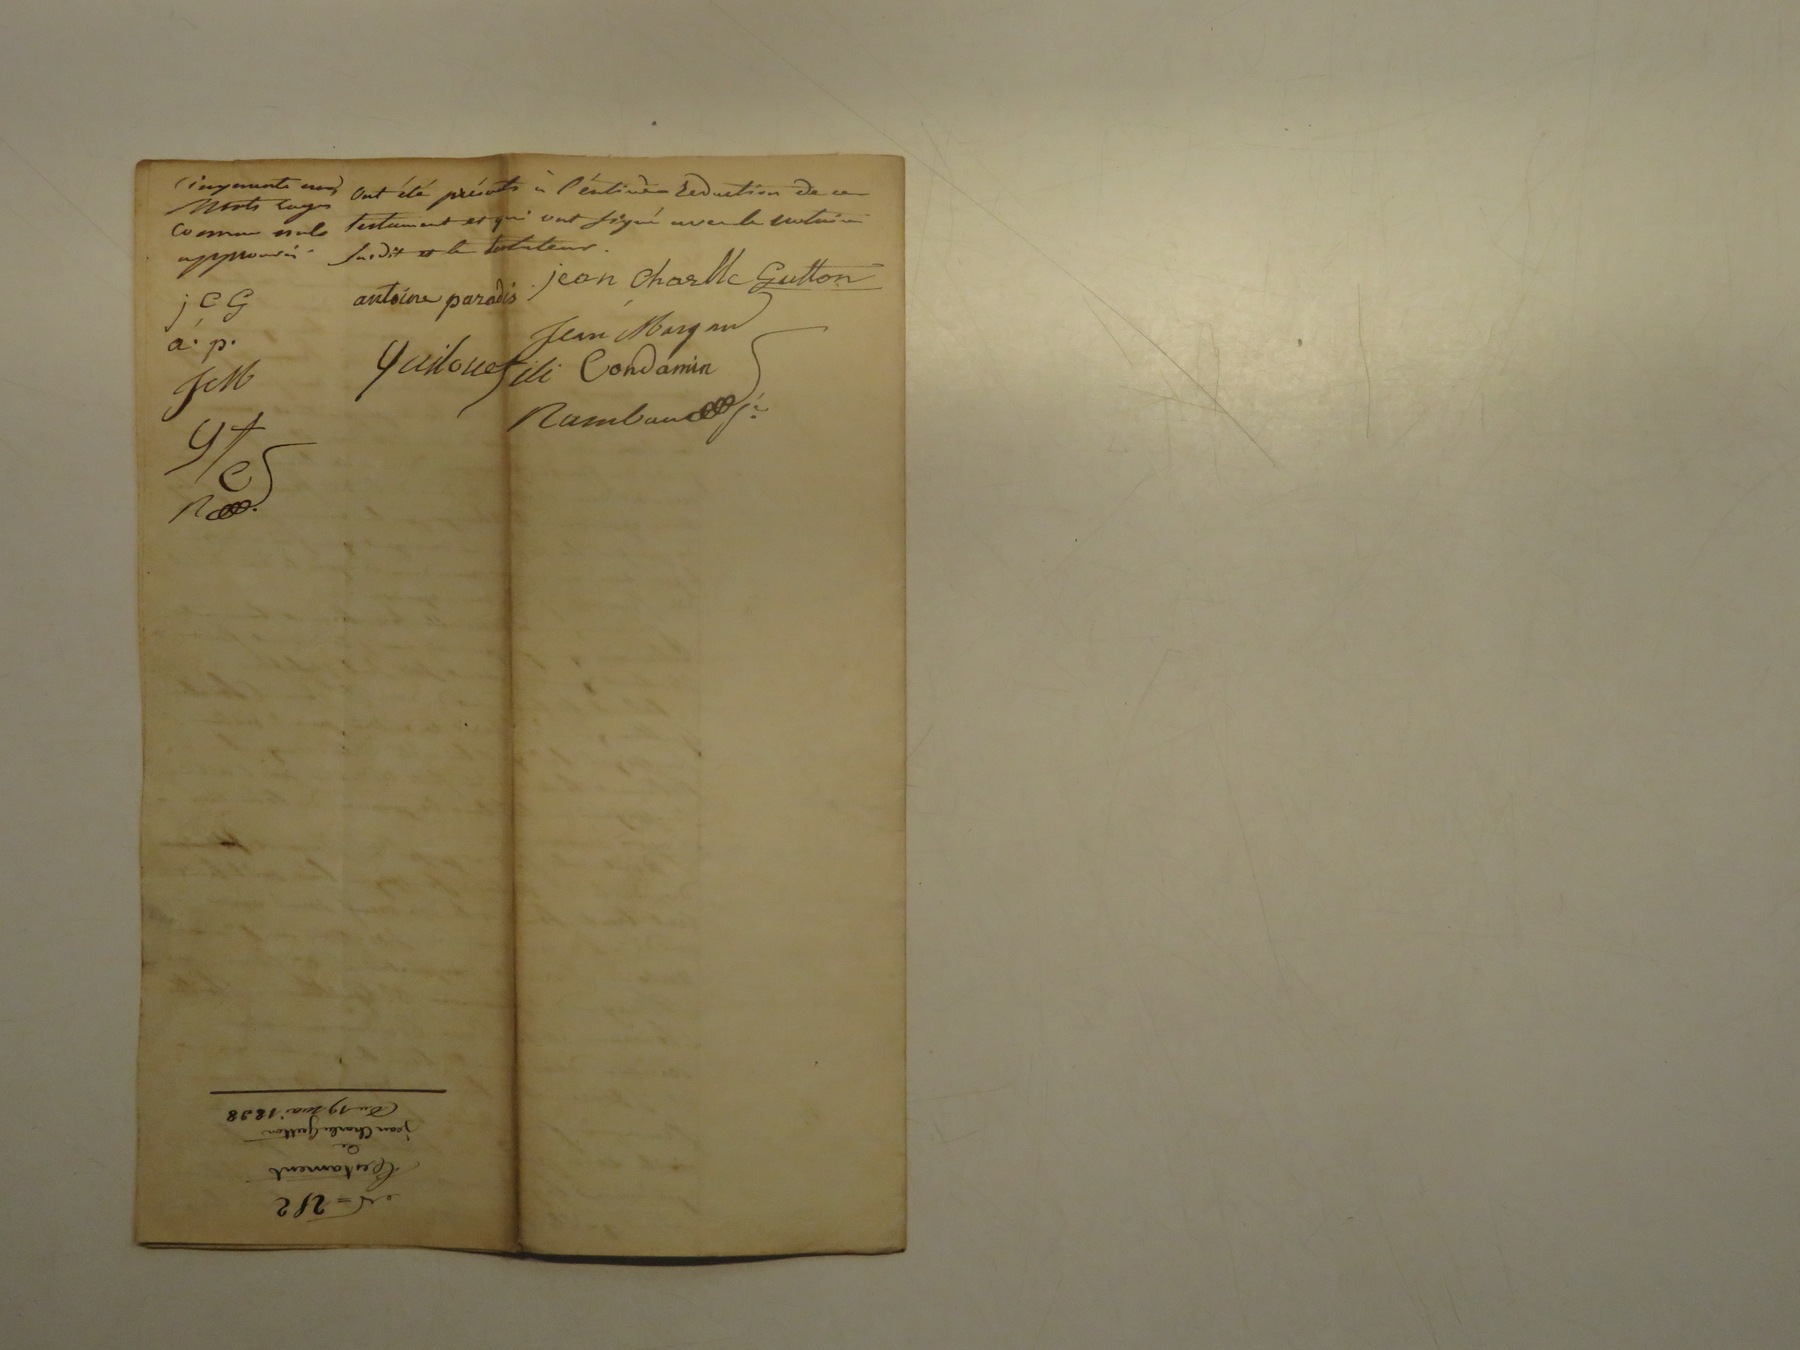 Cinquante un
mots rayés
comme nuls
approuvés.
j C G
a. p.
J M
Y f
C
R
ont été présents à l'entière rédaction de ce
testament et qui ont signé avec le notaire
susdit et le testateur.
jean Charlle Gutton
antoine paradis
Jean
fili Condamin
Rambaud
n = 282
Testament
de
jean Charle Gutton
Du 19 mai 1838